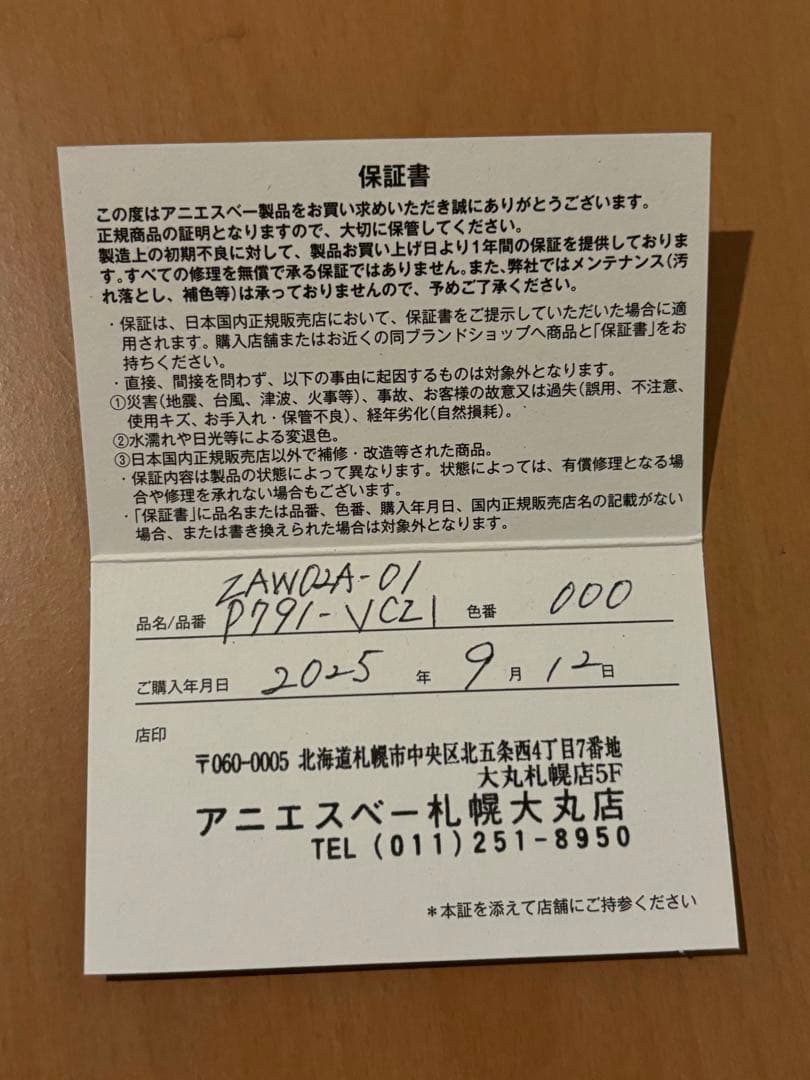 保証書
この度はアニエスベー製品をお買い求めいただき誠にありがとうございます。
正規商品の証明となりますので、大切に保管してください。
製造上の初期不良に対して、製品お買い上げ日より1年間の保証を提供しておりま
す。すべての修理を無償で承る保証ではありません。また、弊社ではメンテナンス(汚
れ落とし、補色等)は承っておりませんので、予めご了承ください。
・保証は、日本国内正規販売店において、保証書をご提示していただいた場合に適
用されます。購入店舗またはお近くの同ブランドショップへ商品と「保証書」をお
持ちください。
・直接、間接を問わず、以下の事由に起因するものは対象外となります。
①災害(地震、台風、津波、火事等)、事故、お客様の故意又は過失(誤用、不注意、
使用キズ、お手入れ・保管不良)、経年劣化(自然損耗)。
②水濡れや日光等による変退色。
③日本国内正規販売店以外で補修・改造等された商品。
・保証内容は製品の状態によって異なります。状態によっては、有償修理となる場
合や修理を承れない場合もございます。
・「保証書」に品名または品番、色番、購入年月日、国内正規販売店名の記載がない
場合、または書き換えられた場合は対象外となります。
ZAW02A-01
品名/品番 P791-VCZ1 色番 000
ご購入年月日 2025 年 9 月 12 日
店印
〒060-0005 北海道札幌市中央区北五条西4丁目7番地
大丸札幌店5F
アニエスベー札幌大丸店
TEL (011)251-8950
*本証を添えて店舗にご持参ください